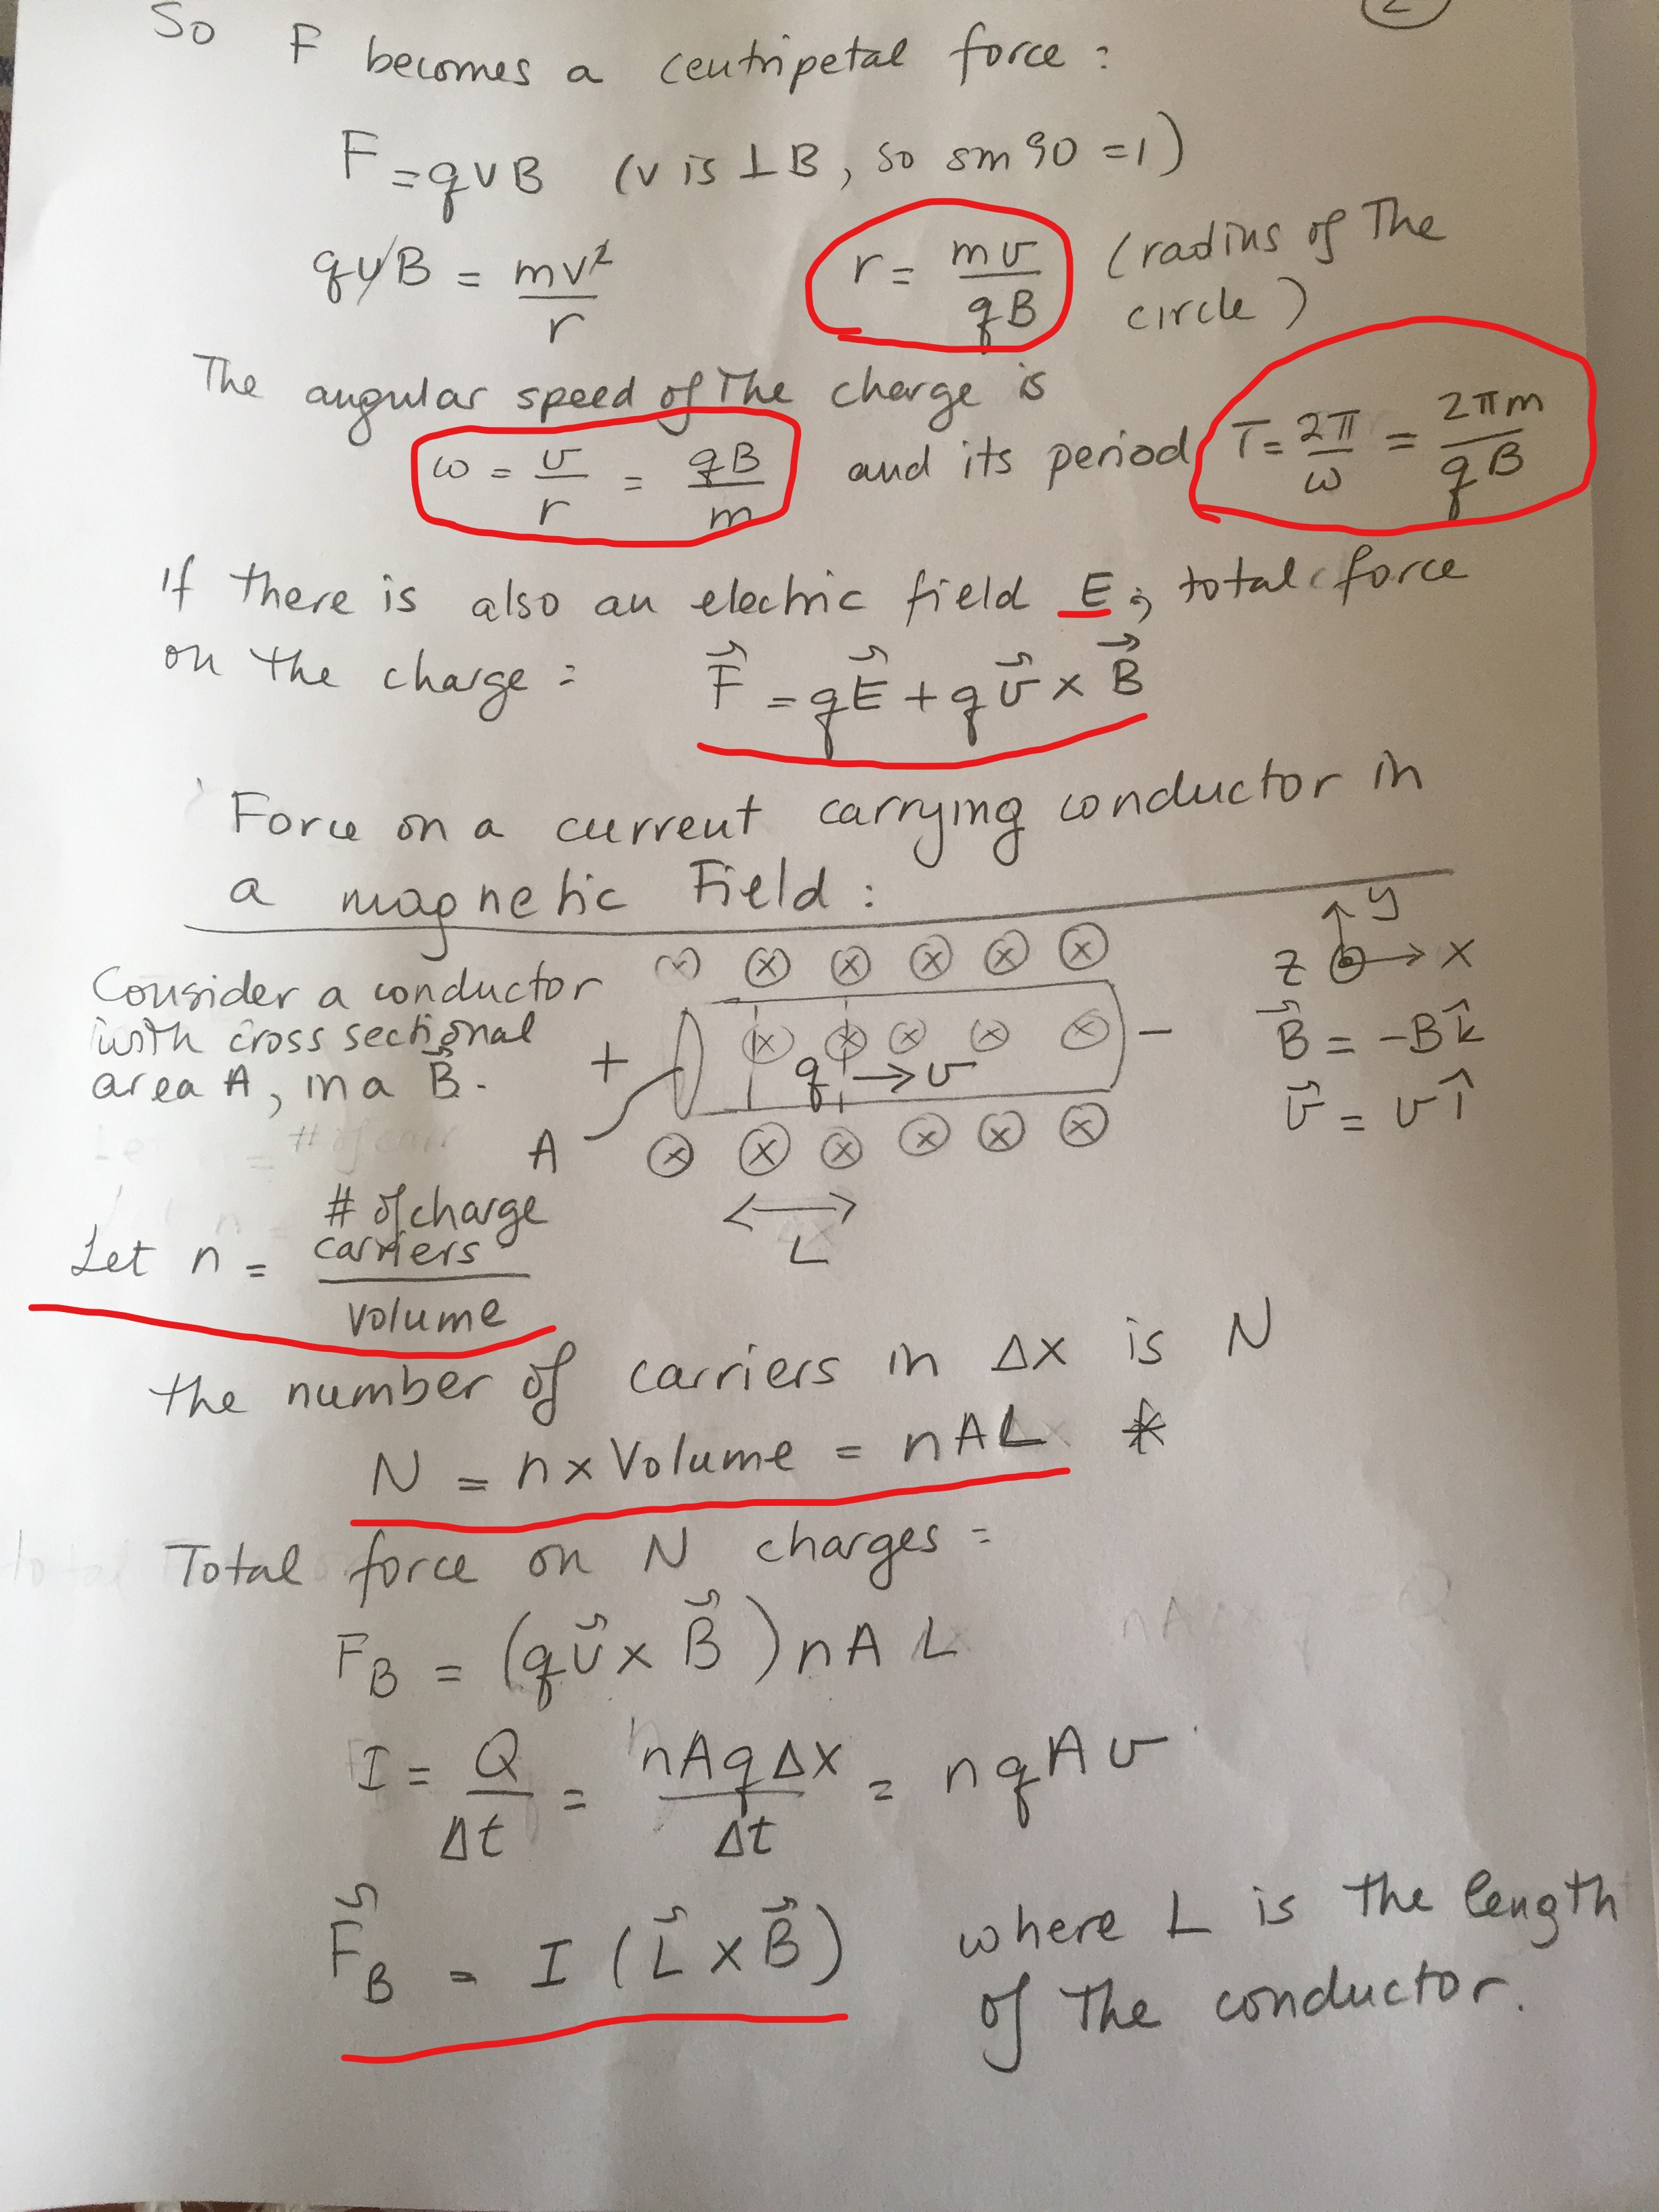 2
So F becomes a centripetal force :
F = qvB (v is ⊥ B, so sin 90 = 1)
qvB = mv²/r r = mv/qB (radius of The circle)
The angular speed of The charge is
ω = v/r = qB/m and its period T = 2π/ω = 2πm/qB
If there is also an electric field E, total force
on the charge : F⃗ = qE⃗ + qv⃗ × B⃗
Force on a current carrying conductor in
a magnetic Field :
Consider a conductor
with cross sectional
area A, in a B⃗.
+ q → v −
A
L
y
z x
B⃗ = -Bk̂
v⃗ = vî
Let n = # of charge carriers / volume
the number of carriers in Δx is N
N = n x Volume = nAL *
Total force on N charges =
F_B = (qv⃗ × B⃗) nAL
I = Q/Δt = nAqΔx/Δt = nqAv
F⃗_B = I (L⃗ × B⃗) where L is the length
of The conductor.